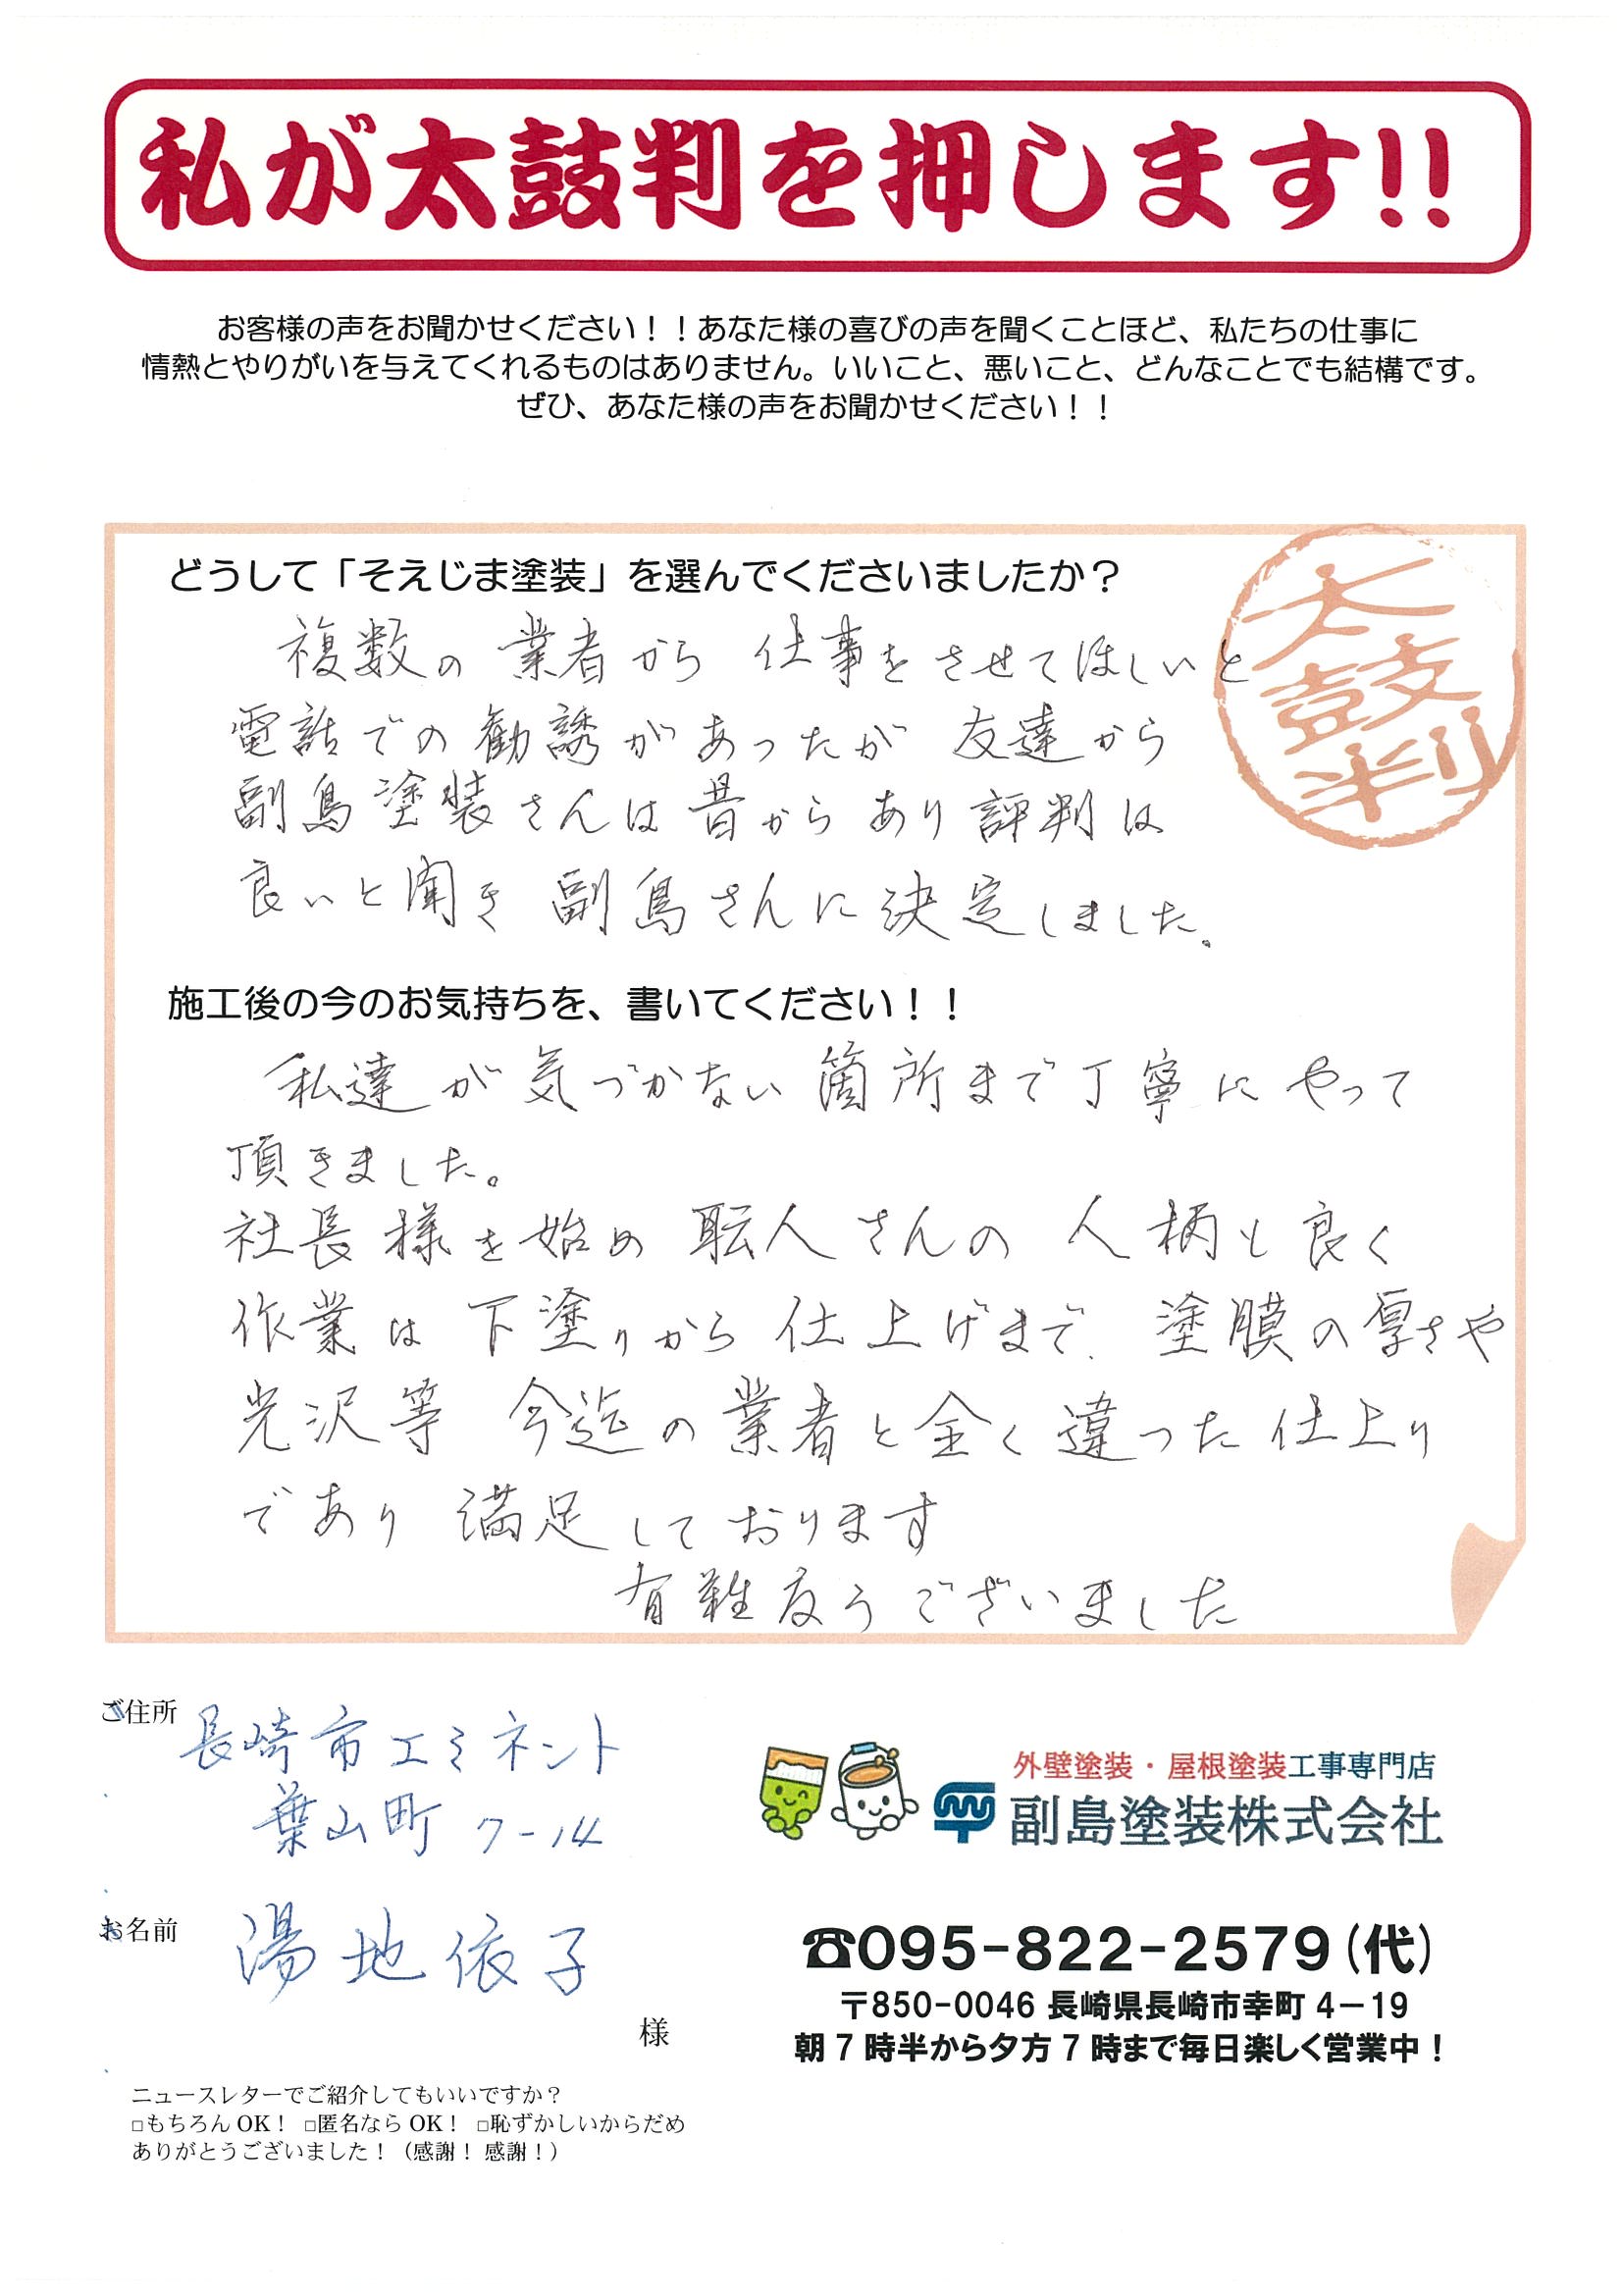 私が太鼓判を押します!!
お客様の声をお聞かせください！！あなた様の喜びの声を聞くことほど、私たちの仕事に
情熱とやりがいを与えてくれるものはありません。いいこと、悪いこと、どんなことでも結構です。
ぜひ、あなた様の声をお聞かせください！！
太鼓判
どうして「そえじま塗装」を選んでくださいましたか？
複数の業者から仕事をさせてほしいと
電話での勧誘があったが友達から
副島塗装さんは昔からあり評判は
良いと聞き副島さんに決定しました。
施工後の今のお気持ちを、書いてください！！
私達が気づかない箇所まで丁寧にやって
頂きました。
社長様を始め職人さんの人柄も良く
作業は下塗りから仕上げまで、塗膜の厚さや
光沢等今迄の業者と全く違った仕上り
であり満足しております
有難度うございました
ご住所 長崎市エミネント
葉山町7-14
お名前 湯地依子
様
ニュースレターでご紹介してもいいですか？
□もちろんOK！ □匿名ならOK！ □恥ずかしいからだめ
ありがとうございました！（感謝！感謝！）
外壁塗装・屋根塗装工事専門店
副島塗装株式会社
☎095-822-2579(代)
〒850-0046 長崎県長崎市幸町4－19
朝7時半から夕方7時まで毎日楽しく営業中！